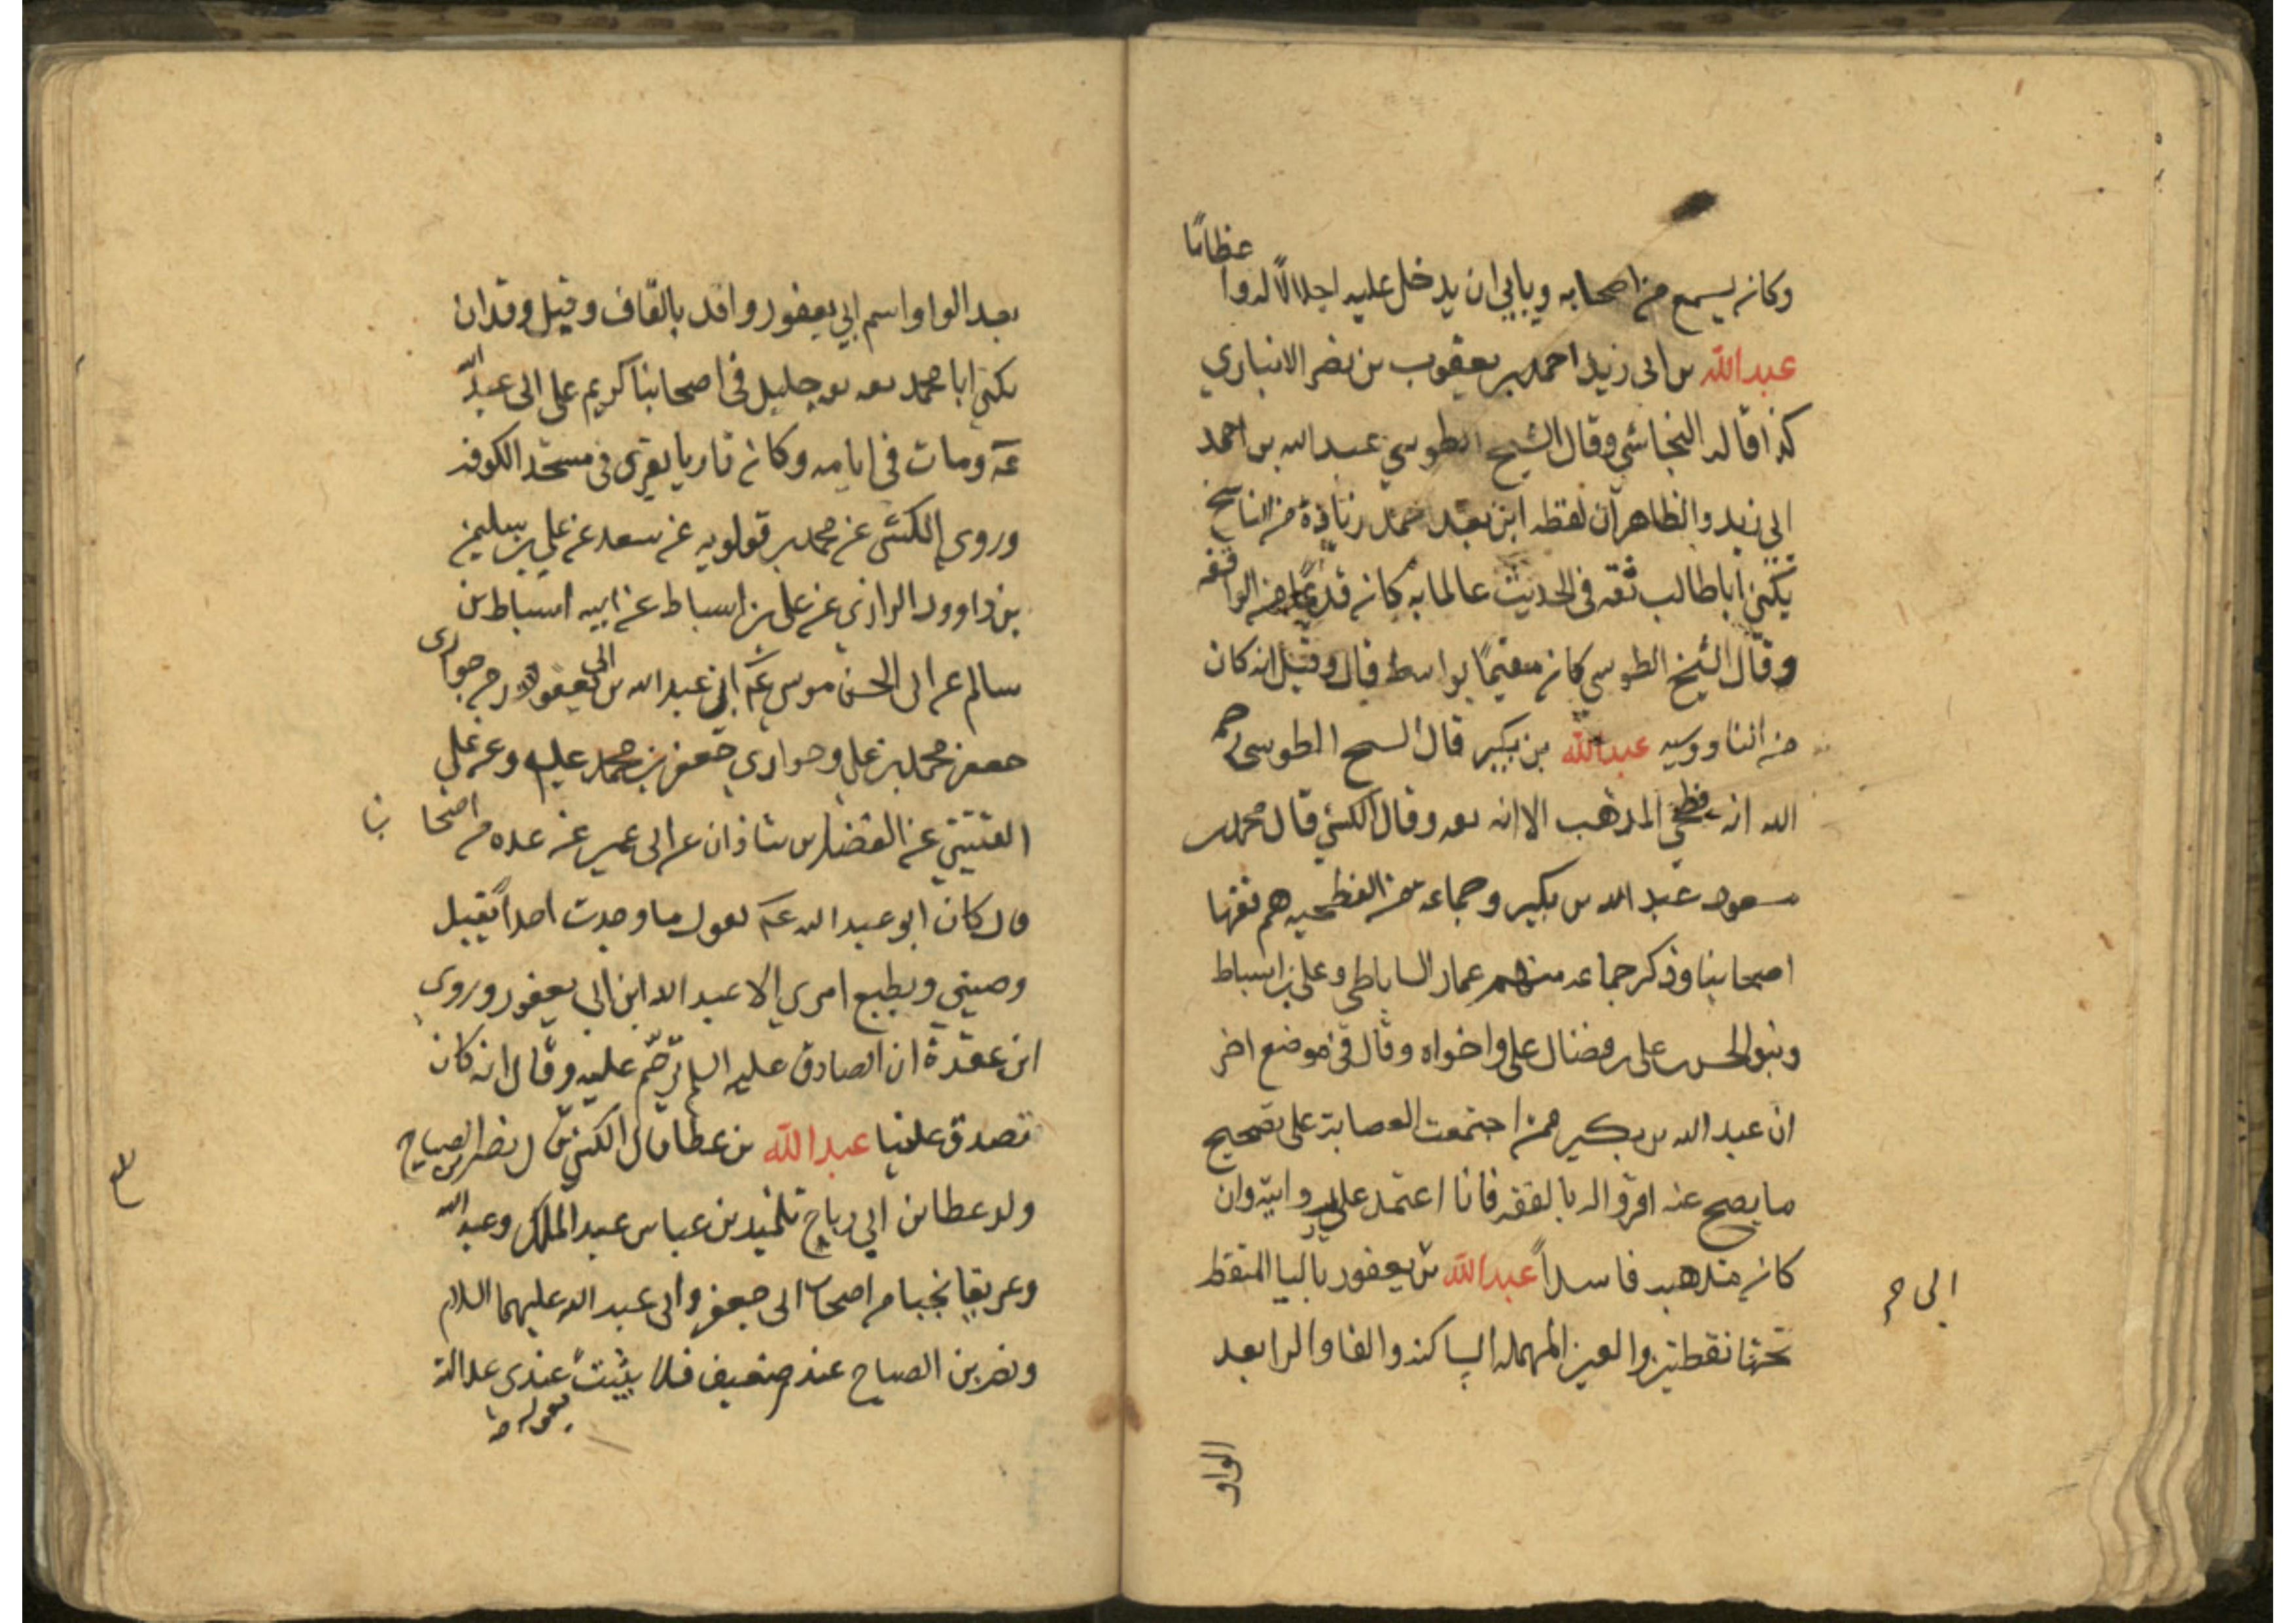 وكان يسمع من اصحابه ويابى ان يدخل عليه اجلالا له واعظاما
عبدالله بن ابى زيد احمد بن يعقوب بن نصر الانباري
كذا قاله النجاشي وقال الشيخ الطوسي عبدالله بن احمد
ابى زيد والظاهر ان لفظه ابن بعد احمد زيادة من الناسخ
يكنى اباطالب ثقه فى الحديث عالما به كان قديما من الواقفه
وقال الشيخ الطوسي كان مقيمًا بواسط قال وقيل انه كان
من الناووسيه عبدالله بن بكير قال الشيخ الطوسى رحمه
الله انه فطحي المذهب الا انه ثقه وقال الكشي قال محمد بن
مسعود عبد الله بن بكير وجماعه من الفطحيه هم فقها
اصحابنا وذكر جماعه منهم عمار الساباطي وعلى بن اسباط
وبنو الحسن بن على بن فضال على واخواه وقال فى موضع اخر
ان عبد الله بن بكير ممن اجتمعت العصابة على تصحيح
ما يصح عنه اقروا له بالفقه فانا اعتمد على روايته وان
كان مذهبه فاسداً عبدالله بن يعفور باليا المنقط
ابى
تحتها نقطتين والعين المهمله الساكنه والفا والرا بعد
الواو
بعد الواو اسم ابي يعفور واقد بالقاف وقيل وقدان
يكنى ابا محمد ثقه ثقه جليل فى اصحابنا كريم على ابى عبد الله
عه ومات فى ايامه وكان قاريا يقرى فى مسجد الكوفه
وروى الكشى عن محمد بن قولويه عن سعد عن على بن سليمن
بن داوود الرازي عن على بن اسباط عن ابيه اسباط بن
سالم عن ابى الحسن موسى عه ان عبد الله بن ابى يعفور من حوارى
جعفر محمد بن علي وحواري جعفر بن محمد عليهم وعن على
القتيبي عن الفضل بن شاذان عن ابى عمير عن عده من اصحابنا
قال كان ابو عبد الله عه يقول ما وجدت احداً يقبل
وصيتي ويطيع امري الا عبد الله ابن ابى يعفور وروى
ابن عقدة ان الصادق عليه السلم ترحّم عليه وقال انه كان
تصدق علينا عبدالله بن عطا قال الكشي قال نصر بن الصباح
ولد عطا بن ابي رباح تلميذ بن عباس عبد الملك وعبد الله
وعريفا نجبا من اصحاب ابى جعفر وابى عبد الله عليهما السلام
ونصر بن الصباح عندي ضعيف فلا يثبت عندي عدالة
بقوله